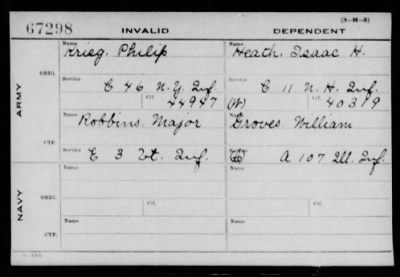 67298
INVALID
DEPENDENT
(3-M-S)
ARMY
ORIG.
Name
Krieg, Philip
Name
Heath, Isaac H.
Service
C 46 N.Y. Inf.
Service
C 11 N.H. Inf.
Ctf.
44947
(W)
Ctf.
40319
CTF.
Name
Robbins, Major
Name
Groves William
Service
E 3 Vt. Inf.
Service
A 107 Ill. Inf.
NAVY
ORIG.
Name
Name
Ctf.
Ctf.
CTF.
Name
Name